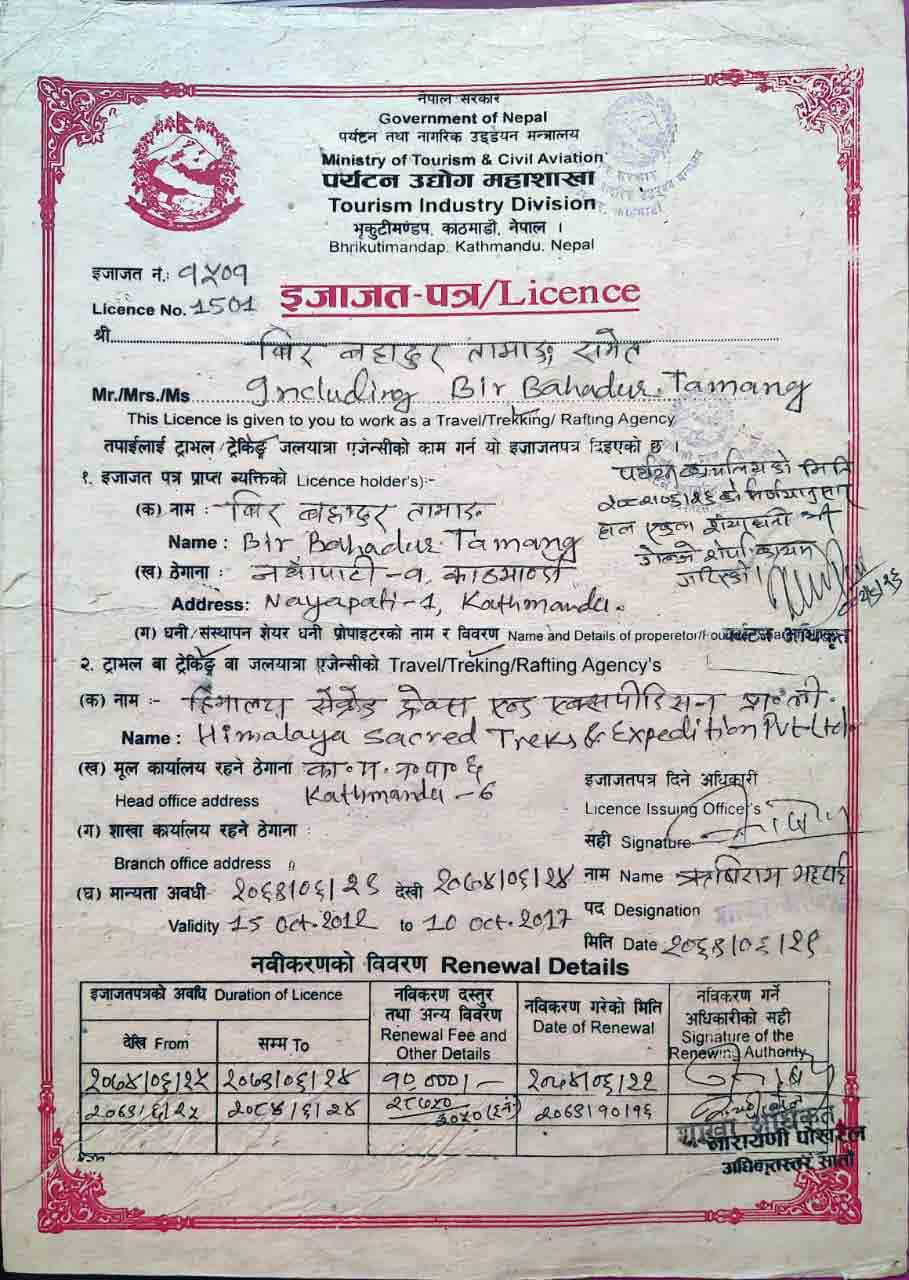 नेपाल सरकार
Government of Nepal
पर्यटन तथा नागरिक उड्डयन मन्त्रालय
Ministry of Tourism & Civil Aviation
पर्यटन उद्योग महाशाखा
Tourism Industry Division
भृकुटीमण्डप, काठमाडौं, नेपाल ।
Bhrikutimandap, Kathmandu, Nepal
इजाजत नं.: १५०१
Licence No. 1501
इजाजत-पत्र/Licence
श्री बिर बहादुर तामाङ समेत
Mr./Mrs./Ms Including Bir Bahadur Tamang
This Licence is given to you to work as a Travel/Trekking/ Rafting Agency
तपाईलाई ट्राभल/ट्रेकिङ्ग जलयात्रा एजेन्सीको काम गर्न यो इजाजतपत्र दिइएको छ ।
१. इजाजत पत्र प्राप्त ब्यक्तिको Licence holder's):-
(क) नाम : बिर बहादुर तामाङ
Name : Bir Bahadur Tamang
(ख) ठेगाना : नयाँपाटी-१, काठमाण्डौ
Address: Nayapati-1, Kathmandu.
(ग) धनी/संस्थापन शेयर धनी प्रोपाइटरको नाम र विवरण Name and Details of properetor/
पर्यटन अधिकृत
२. ट्राभल बा ट्रेकिङ्ग बा जलयात्रा एजेन्सीको Travel/Treking/Rafting Agency's
(क) नाम :- हिमालय सेक्रेड ट्रेक्स एन्ड एक्सपीडिसन प्रा.ली.
Name : Himalaya Sacred Treks & Expedition Pvt. Ltd.
(ख) मूल कार्यालय रहने ठेगाना का.म.न.पा. ६
Head office address Kathmandu - 6
(ग) शाखा कार्यालय रहने ठेगाना :
Branch office address
(घ) मान्यता अवधी २०६९/०६/२९ देखी २०७४/०६/२४
Validity 15 Oct. 2012 to 10 Oct. 2017
इजाजतपत्र दिने अधिकारी
Licence Issuing Officer's
सही Signature
नाम Name ऋषिराम भट्टराई
पद Designation
मिति Date २०६९/०६/२९
नवीकरणको विवरण Renewal Details
इजाजतपत्रको अवधि Duration of Licence
देखि From
सम्म To
नविकरण दस्तुर तथा अन्य विवरण
Renewal Fee and Other Details
नविकरण गरेको मिति
Date of Renewal
नविकरण गर्ने अधिकारीको सही
Signature of the Renewing Authority
२०७४/०६/२५ २०७९/०६/२४ १०,०००/- २०७४/०६/२२
२०७९/६/२५ २०८४/६/२४ २०७९/१०/१६
शाखा अधिकृत
नारायणी पोखरेल
अधिकृतस्तर सातौं